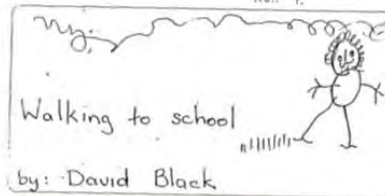 Walking to school
by: David Black